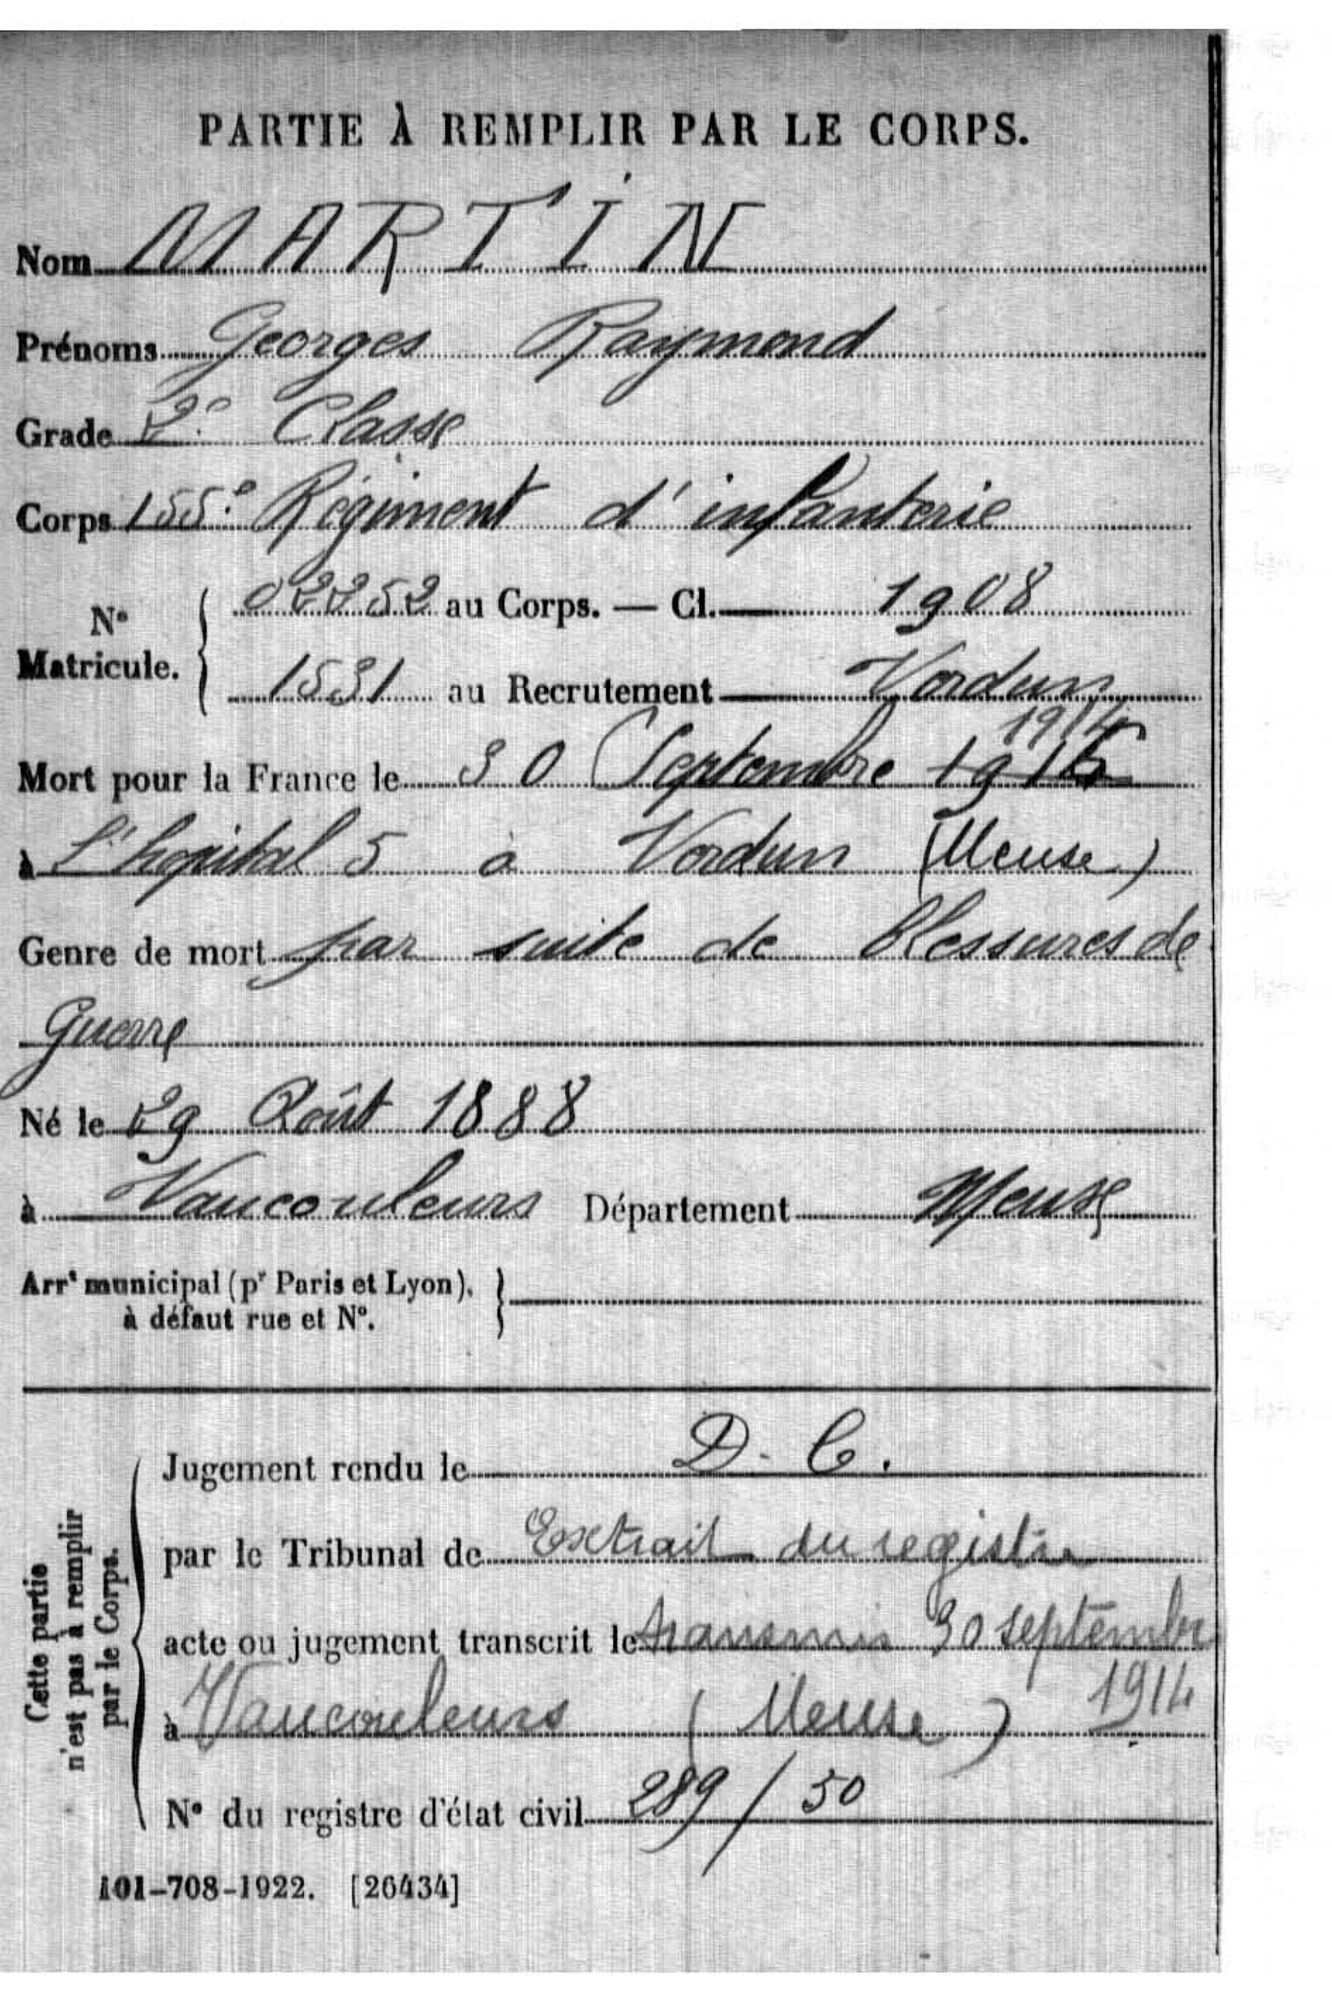 PARTIE À REMPLIR PAR LE CORPS.
Nom MARTIN
Prénoms Georges Raymond
Grade 2e Classe
Corps 155e Régiment d'infanterie
No Matricule. { 02252 au Corps. — Cl. 1908
1531 au Recrutement Verdun
1914
Mort pour la France le 30 Septembre 1915
à L'hopital 5 à Verdun (Meuse)
Genre de mort par suite de blessures de
Guerre
Né le 29 Août 1888
à Vaucouleurs Département Meuse
Arrt municipal (pr Paris et Lyon), }
à défaut rue et No.
Cette partie
n'est pas à remplir
par le Corps.
Jugement rendu le D. C.
par le Tribunal de Extrait du registre
acte ou jugement transcrit le transmis 30 septembre
à Vaucouleurs (Meuse) 1914
No du registre d'état civil 289/50
101-708-1922. [26434]